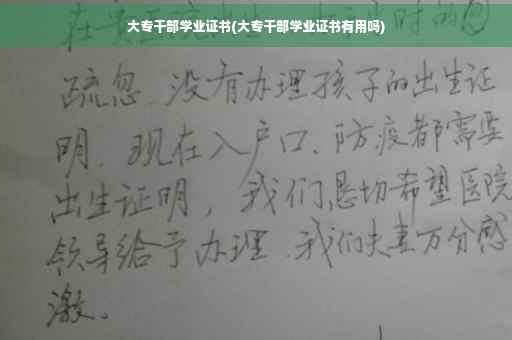 大专干部学业证书(大专干部学业证书有用吗)
疏忽、没有办理孩子的出生证
明、现在入户口、防疫都需要
出生证明，我们恳切希望医院
领导给予办理、我们夫妻万分感
激。